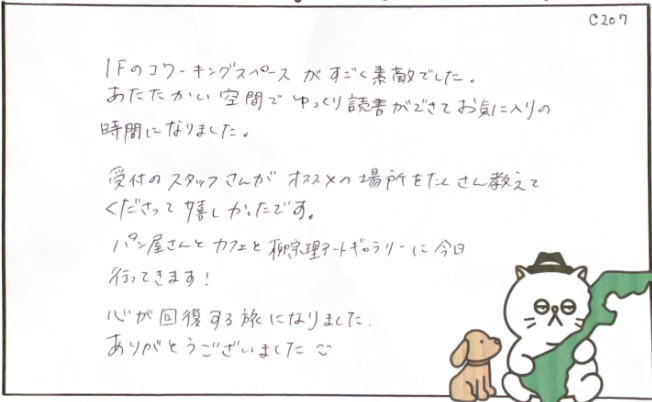 C207
1Fのコワーキングスペースがすごく素敵でした。
あたたかい空間でゆっくり読書ができてお気に入りの
時間になりました。
受付のスタッフさんがオススメの場所をたくさん教えて
くださって嬉しかったです。
パン屋さんとカフェと柳宗理アートギャラリーに今日
行ってきます!
心が回復する旅になりました.
ありがとうございました